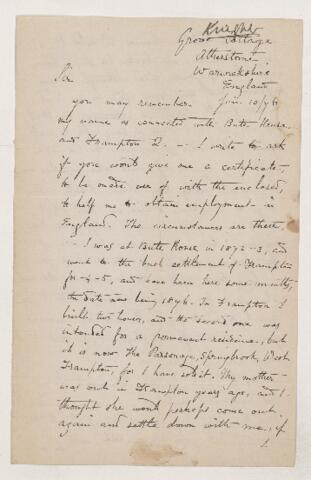 Grove Cottage
Atherstone
Warwickshire
England
Sir Jan. 10/76
you may remember
my name as connected with Bute House,
and Frampton 2. — I write to ask
if you won't give me a certificate,
to be made use of with the enclosed,
to help me to obtain employment in
England. The circumstances are these.
— I was at Bute House in 1872-3, and
went to the bush settlement of Frampton
for -4-5, and have been here some months,
the date now being 1876. In Frampton I
built two houses, and the second one was
intended for a permanent residence, but
it is now the Parsonage, Springbrook, West
Frampton, for I have sold it. My mother
was out in Frampton years ago, and I
thought she would perhaps come out
again and settle down with me, if